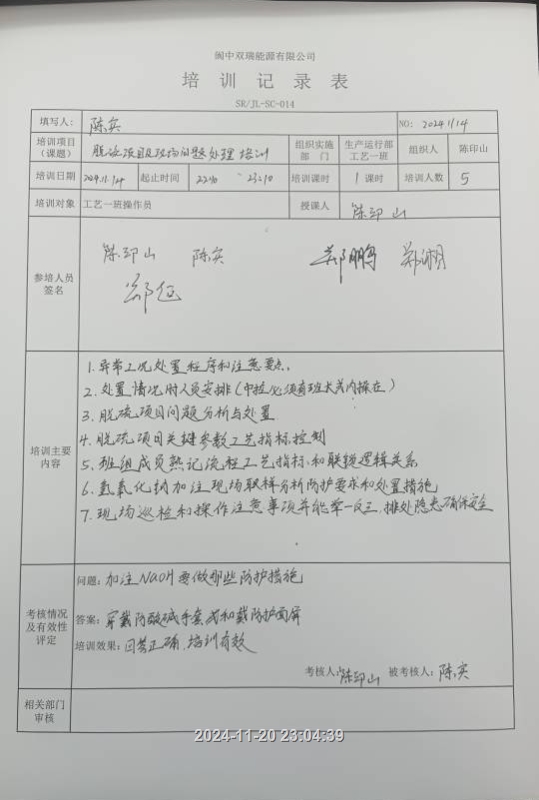 阆中双瑞能源有限公司
培训记录表
SR/JL-SC-014
填写人: 陈实 NO: 2024.11/14
培训项目(课题) 脱硫项目及现场问题处理培训 组织实施部门 生产运行部工艺一班 组织人 陈印山
培训日期 2024.11/14 起止时间 22:10 ~ 23:10 培训课时 1课时 培训人数 5
培训对象 工艺一班操作员 授课人 陈印山
参培人员签名
陈印山 陈实 郑鹏 郑湘
郑征
培训主要内容
1. 异常工况处置程序和注意要点。
2. 处置情况时人员安排(中控必须有班长或内操在)
3. 脱硫项目问题分析与处置
4. 脱硫项目关键参数工艺指标控制
5. 班组成员熟记流程工艺指标和联锁逻辑关系
6. 氢氧化钠加注现场取样分析防护要求和处置措施
7. 现场巡检和操作注意事项并能举一反三,排处隐患确保安全
考核情况及有效性评定
问题: 加注NaOH要做哪些防护措施
答案: 穿戴防酸碱手套或和戴防护面屏
培训效果: 回答正确,培训有效
考核人: 陈印山 被考核人: 陈实
相关部门审核
2024-11-20 23:04:39